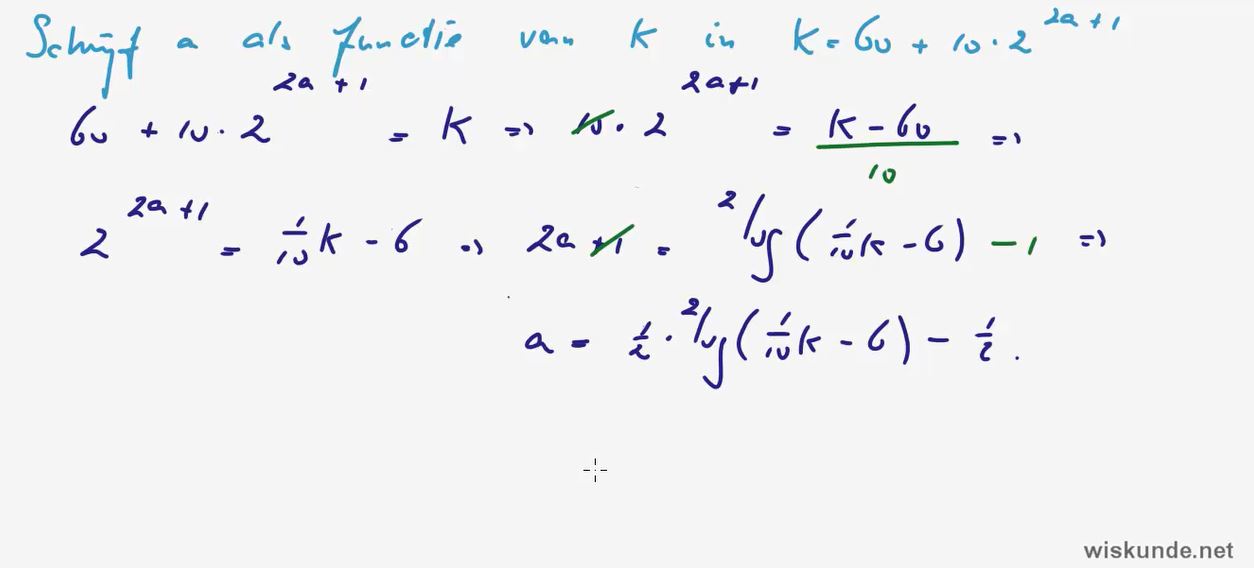 Schrijf a als functie van K in K = 60 + 10 · 2^(2a+1)
60 + 10 · 2^(2a+1) = K => 10 · 2^(2a+1) = (K - 60)/10 =>
2^(2a+1) = 1/10 K - 6 => 2a + 1 = ²log(1/10 K - 6) - 1 =>
a = 1/2 · ²log(1/10 K - 6) - 1/2 .
wiskunde.net